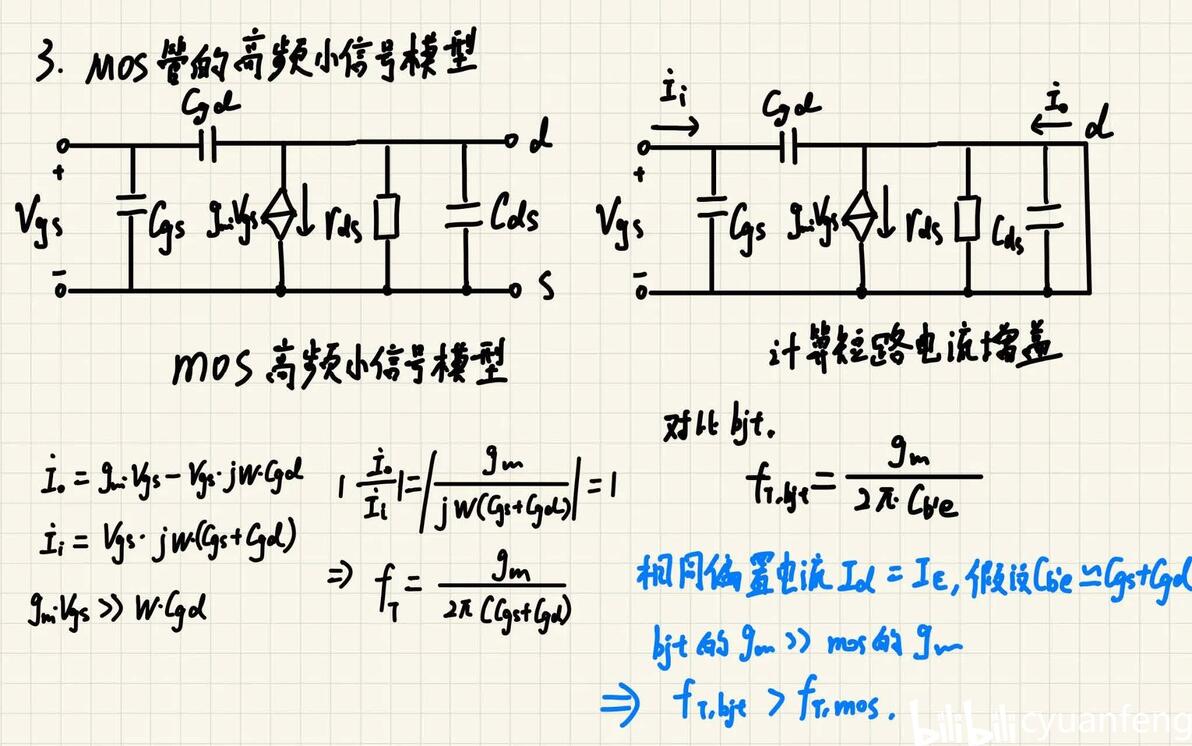 3. MOS管的高频小信号模型
Cgd
d
+
Vgs
Cgs
gm·Vgs
rds
Cds
-
s
mos 高频小信号模型
İi
Cgd
İo
d
+
Vgs
Cgs
gm·Vgs
rds
Cds
-
计算短路电流增益
İo = gm·Vgs - Vgs·jw·Cgd
İi = Vgs·jw·(Cgs+Cgd)
gm·Vgs >> w·Cgd
|İo/İi| = |gm/(jw(Cgs+Cgd))| = 1
⇒ fT = gm/(2π(Cgs+Cgd))
对比 bjt.
fT,bjt = gm/(2π·Cb'e)
相同偏置电流 Id = IE, 假设 Cb'e ≃ Cgs+Cgd
bjt 的 gm >> mos 的 gm
⇒ fT,bjt > fT,mos.
bilibili cyuanfeng